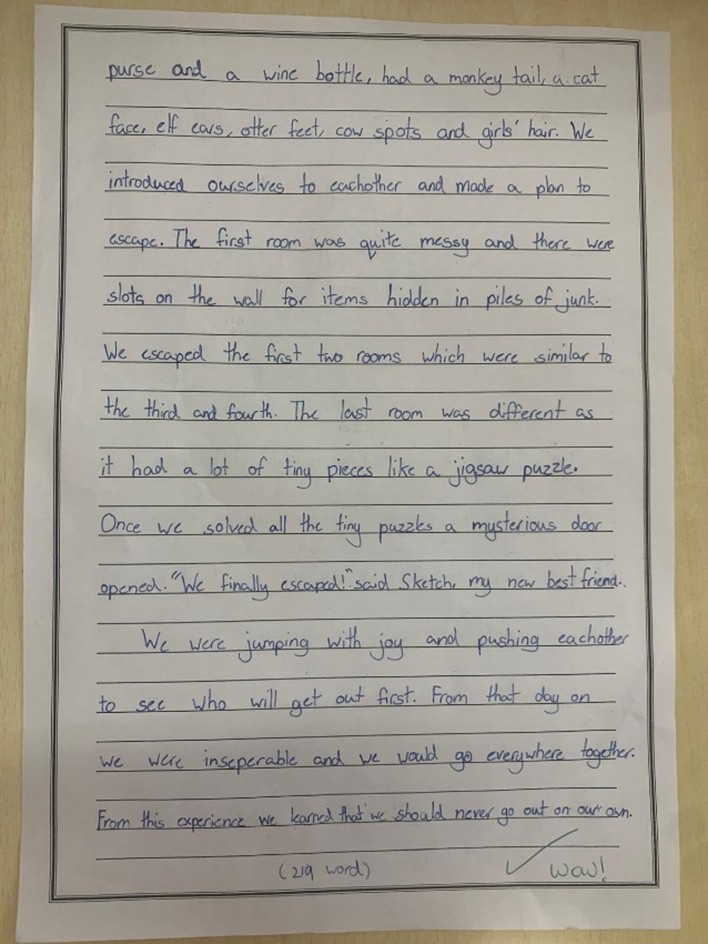 purse and a wine bottle, had a monkey tail, a cat
face, elf ears, otter feet, cow spots and girls' hair. We
introduced ourselves to eachother and made a plan to
escape. The first room was quite messy and there were
slots on the wall for items hidden in piles of junk.
We escaped the first two rooms which were similar to
the third and fourth. The last room was different as
it had a lot of tiny pieces like a jigsaw puzzle.
Once we solved all the tiny puzzles a mysterious door
opened. "We finally escaped!" said Sketch, my new best friend.
We were jumping with joy and pushing eachother
to see who will get out first. From that day on
we were inseperable and we would go everywhere together.
From this experience we learned that we should never go out on our own.
(219 word)
Wow!